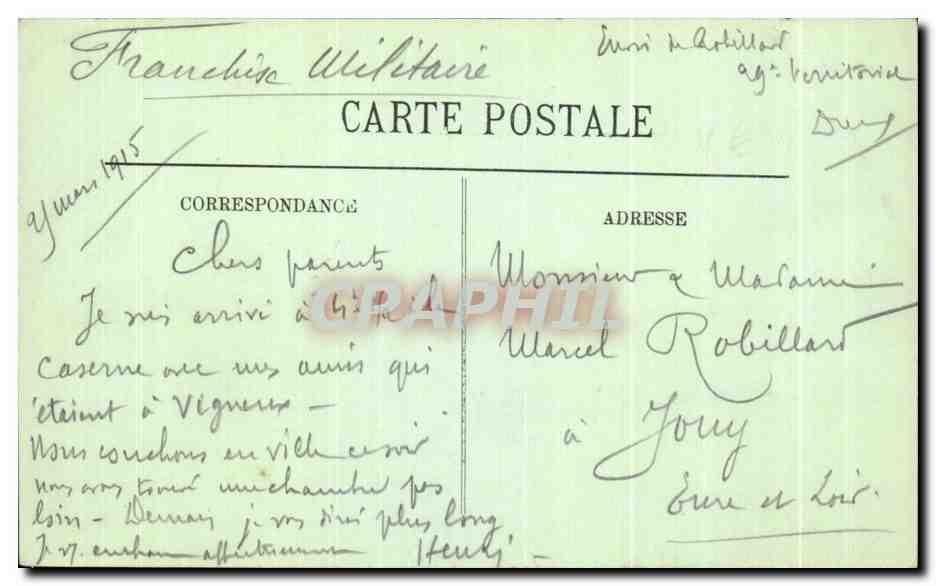 Franchise Militaire
Envoi de Robillard
29e territorial
Dreux
CARTE POSTALE
25 mars 1915
CORRESPONDANCE
ADRESSE
Chers parents
Je suis arrivé à la
caserne avec mes amis qui
étaient à Vigneux —
Nous couchons en ville ce soir
nous avons trouvé une chambre pas
loin — Demain je vous dirai plus long
Je vs. affectueusement Henri —
Monsieur & Madame
Marcel Robillard
à Jouy
Eure et Loir.
CPAPHIL